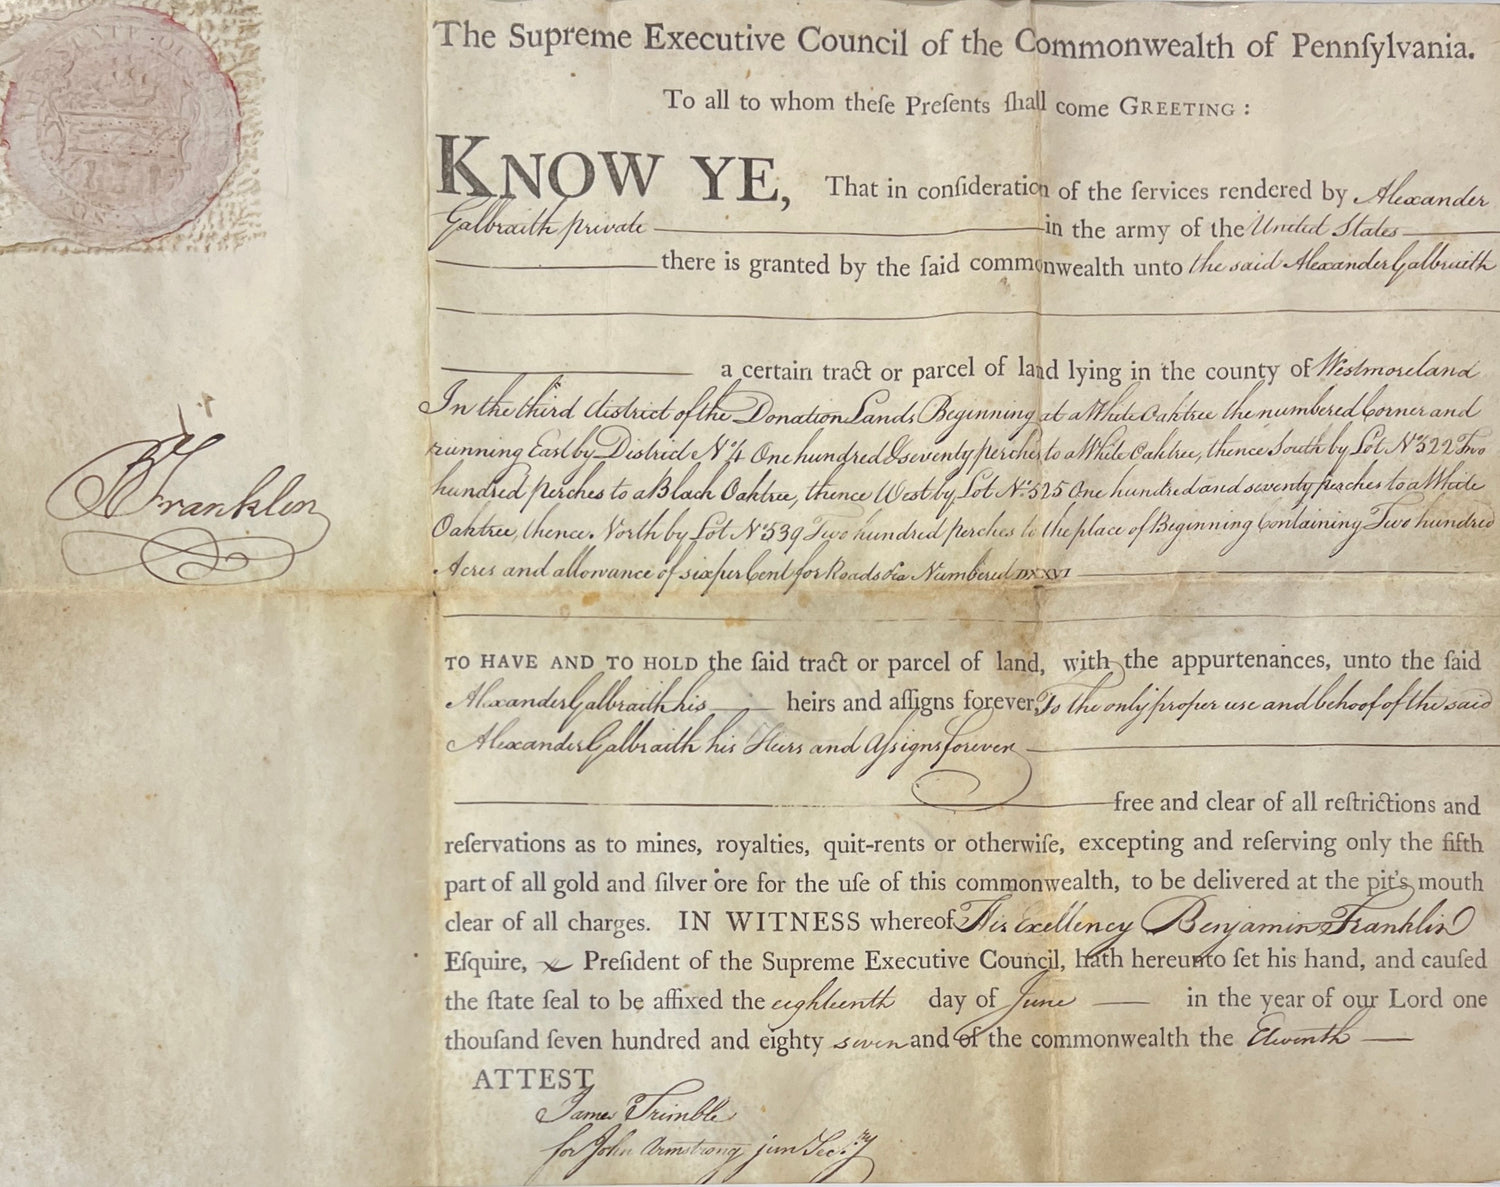 STATE OF
The Supreme Executive Council of the Commonwealth of Pennſylvania.
To all to whom theſe Preſents ſhall come GREETING :
KNOW YE, That in conſideration of the ſervices rendered by Alexander
Galbraith private in the army of the United States
there is granted by the ſaid commonwealth unto the said Alexander Galbraith
a certain tract or parcel of land lying in the county of Westmoreland
In the third district of the Donation Lands Beginning at a White Oaktree the numbered Corner and
running East by District No. 4 One hundred & seventy perches to a White Oaktree, thence South by Lot No. 522 Two
hundred perches to a Black Oaktree, thence West by Lot No. 525 One hundred and seventy perches to a White
Oaktree, thence North by Lot No. 539 Two hundred perches to the place of Beginning Containing Two hundred
Acres and allowance of six per Cent for Roads &ca Numbered DXXVI
TO HAVE AND TO HOLD the ſaid tract or parcel of land, with the appurtenances, unto the ſaid
Alexander Galbraith his heirs and aſſigns forever, To the only proper use and behoof of the said
Alexander Galbraith his Heirs and Aſsigns forever
free and clear of all reſtrictions and
reſervations as to mines, royalties, quit-rents or otherwiſe, excepting and reſerving only the fifth
part of all gold and ſilver ore for the uſe of this commonwealth, to be delivered at the pit's mouth
clear of all charges. IN WITNESS whereof His Exellency Benjamin Franklin
Eſquire, Preſident of the Supreme Executive Council, hath hereunto ſet his hand, and cauſed
the ſtate ſeal to be affixed the eighteenth day of June in the year of our Lord one
thouſand ſeven hundred and eighty seven and of the commonwealth the Eleventh
ATTEST
James Trimble
for John Armstrong jun Secry
B Franklin